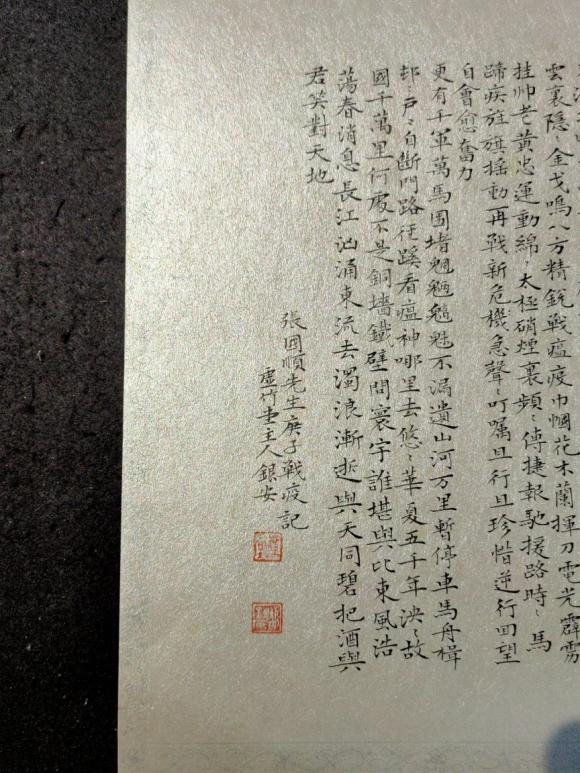 雲裏隱〻金戈鳴八方精銳戰瘟疫巾帼花木蘭揮刀電光霹靂
挂帅老黄忠運動綿〻太極硝煙裏頻〻傳捷報馳援路時〻馬
蹄疾旌旗摇動再戰新危機急聲〻叮嘱且行且珍惜逆行回望
自會愈奮力
更有千軍萬馬围堵魍魎魑魅不漏遺山河万里暫停車馬舟楫
邨〻戶〻自斷門路径蹊看瘟神哪里去悠〻華夏五千年泱〻故
國千萬里何處不是銅墙鐵壁問寰宇誰堪與比東風浩
蕩春消息長江汹涌東流去濁浪漸逝與天同碧把酒與
君笑對天地
張国順先生庚子戰疫記
虚竹堂主人銀安